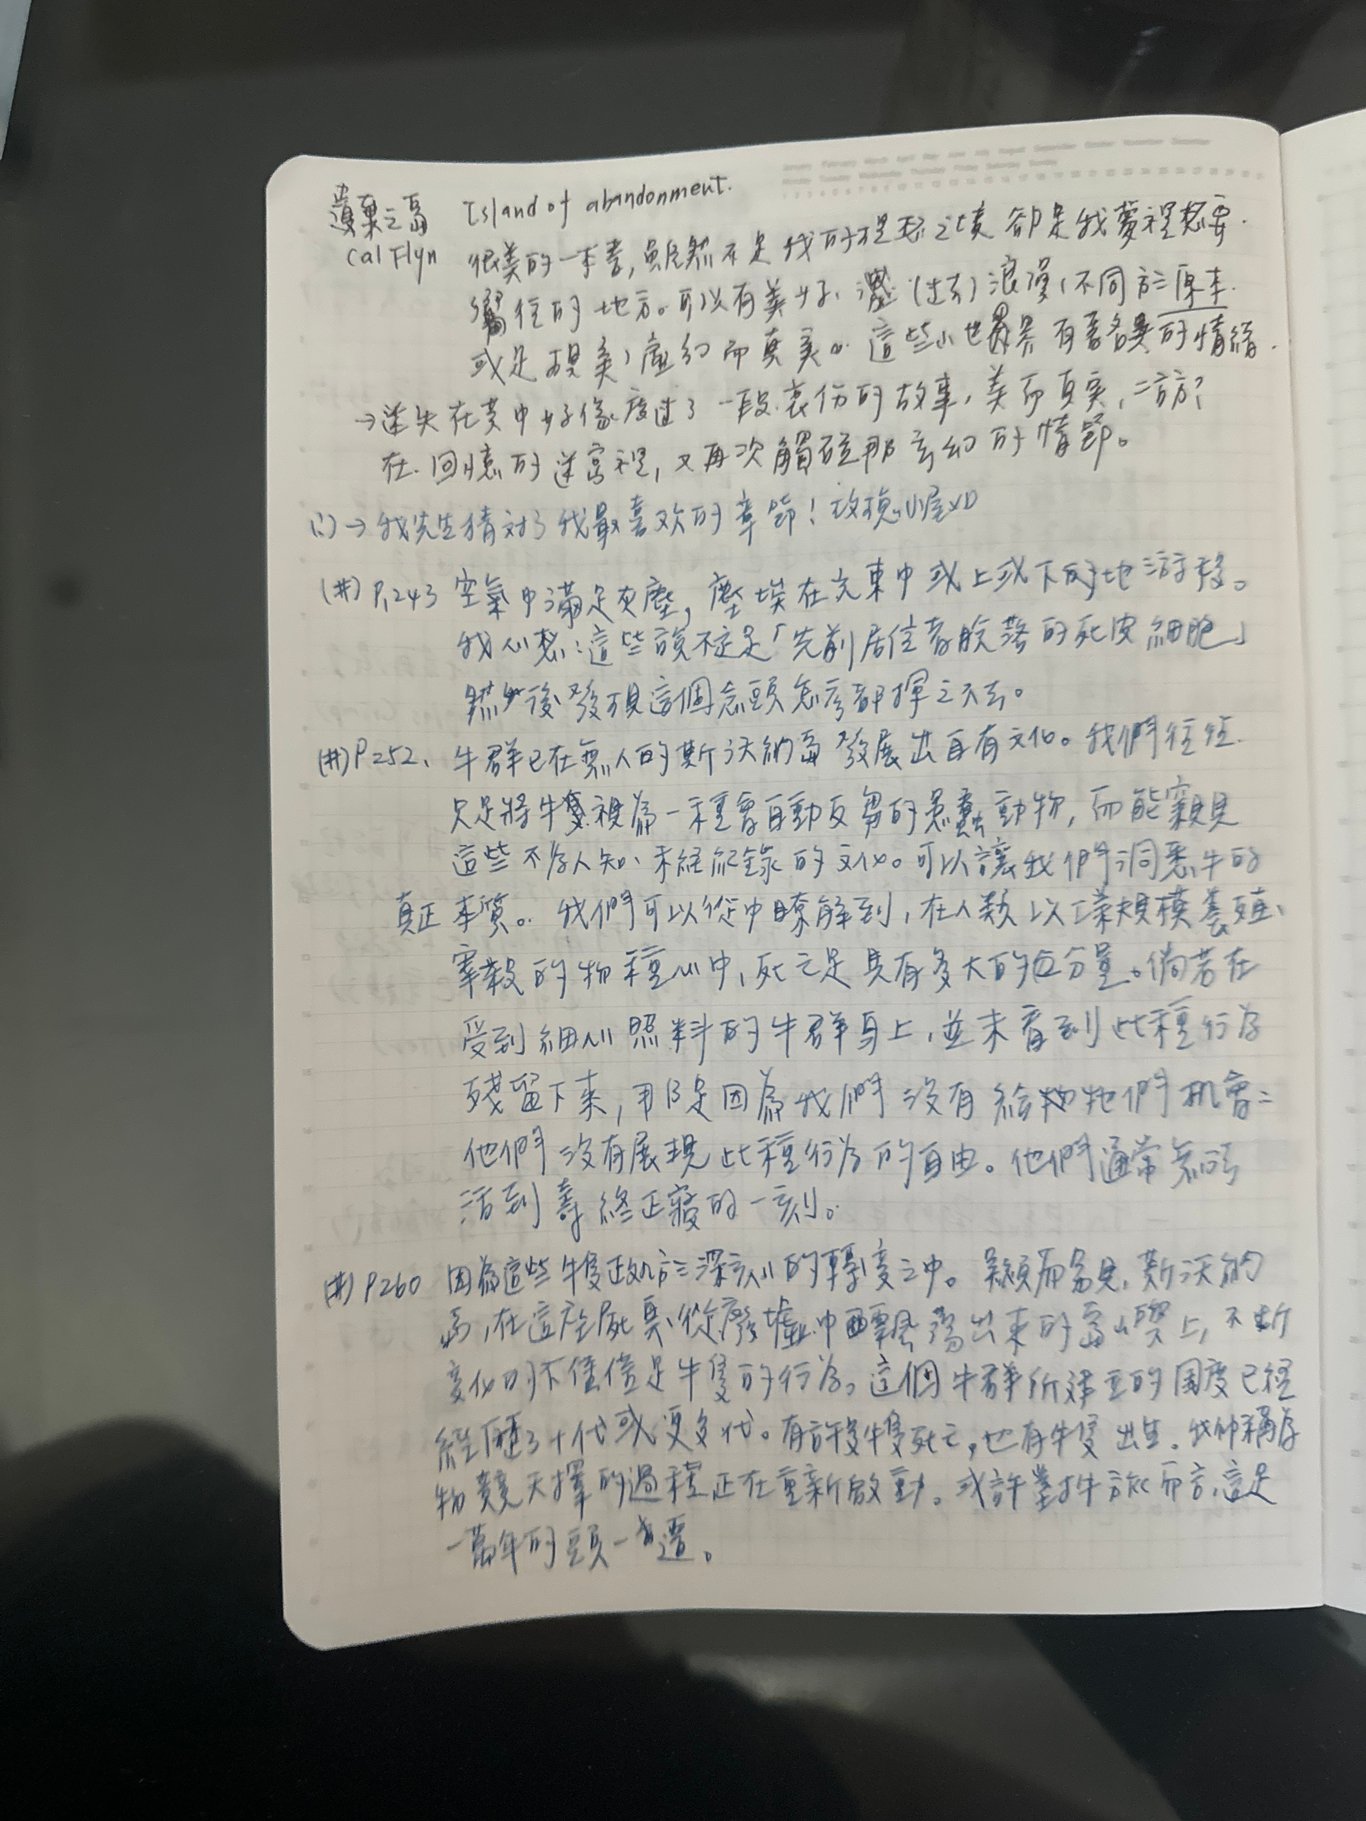 遺棄之島 Island of abandonment.
Cal Flyn 很美的一本書,雖然不是我的理想之境 卻是我夢裡想要
居住的地方。可以有美好、(过去)浪漫,不同於原本.
或是現實,虛幻而真實。這些小世界 有著各異的情緒.
→迷失在其中好像度过了一段哀伤的故事,美而真实,
在回憶的迷宮裡,又再次觸碰那玄幻的情節。
→我先生猜对了我最喜欢的章節!玫瑰小屋XD
(#) P.243 空氣中滿是灰塵,塵埃在光束中或上或下的地游移。
我心想:這些說不定是「先前居住者脫落的死皮細胞」
然後發現這個念頭怎麼都揮之不去。
(#) P252、牛群已在無人的斯沃納島發展出自有文化。我們往往
只是將牛隻視為一種會自動反芻的愚蠢動物,而能窺見
這些不為人知、未經紀錄的文化。可以讓我們洞悉牛的
真正本質。我們可以從中瞭解到,在人類以工業規模養殖、
宰殺的物種心中,死亡是具有多大的份量。倘若在
受到細心照料的牛群身上,並未看到此種行為
殘留下來,那是因為我們沒有給牠們机會:
他們沒有展現此種行為的自由。他們通常無法
活到壽終正寢的一刻。
(#) P260 因為這些牛隻正处於深刻的轉變之中。顯而易見,斯沃納
島,在這座屍臭從廢墟中飄蕩出來的島嶼上,不斷
変化的不僅僅是牛隻的行為。這個牛群所建立的国度已經
經歷了十代或更多代。有許多牛隻死亡,也有牛隻出生.我們稱為
物競天擇的過程正在重新啟動。或許對牛族而言,這是
一萬年的頭一遭。